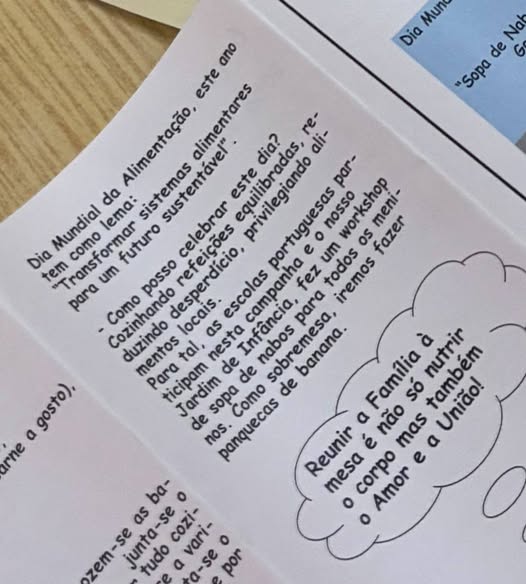 Dia Mundial da Alimentação, este ano
tem como lema:
"Transformar sistemas alimentares
para um futuro sustentável".
- Como posso celebrar este dia?
Cozinhando refeições equilibradas, re-
duzindo desperdício, privilegiando ali-
mentos locais.
Para tal, as escolas portuguesas par-
ticipam nesta campanha e o nosso
Jardim de Infância, fez um workshop
de sopa de nabos para todos os meni-
nos. Como sobremesa, iremos fazer
panquecas de banana.
Reunir a Família à
mesa é não só nutrir
o corpo mas também
o Amor e a União!
arne a gosto),
ozem-se as ba-
junta-se o
tudo cozi-
e a vari-
ta-se o
e por
Dia Mun
"Sopa de Nab